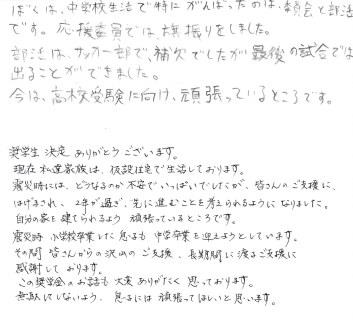 ぼくは、中学校生活で特にがんばったのは、委員会と部活
です。応援委員では旗振りをしました。
部活は、サッカー部で、補欠でしたが最後の試合では
出ることができました。
今は、高校受験に向け、頑張っているところです。
奨学生決定ありがとうございます。
現在私達家族は、仮設住宅で生活しております。
震災時には、どうなるのか不安でいっぱいでしたが、皆さんのご支援に、
はげまされ、2年が過ぎ、先に進むことを考えられるようになりました。
自分の家を建てられるよう頑張っているところです。
震災時小学校卒業した息子も中学卒業を迎えようとしています。
その間皆さんからの沢山のご支援、長期間に渡るご支援に
感謝しております。
この奨学金のお話も大変ありがたく思っております。
無駄にしないよう、息子には頑張ってほしいと思います。